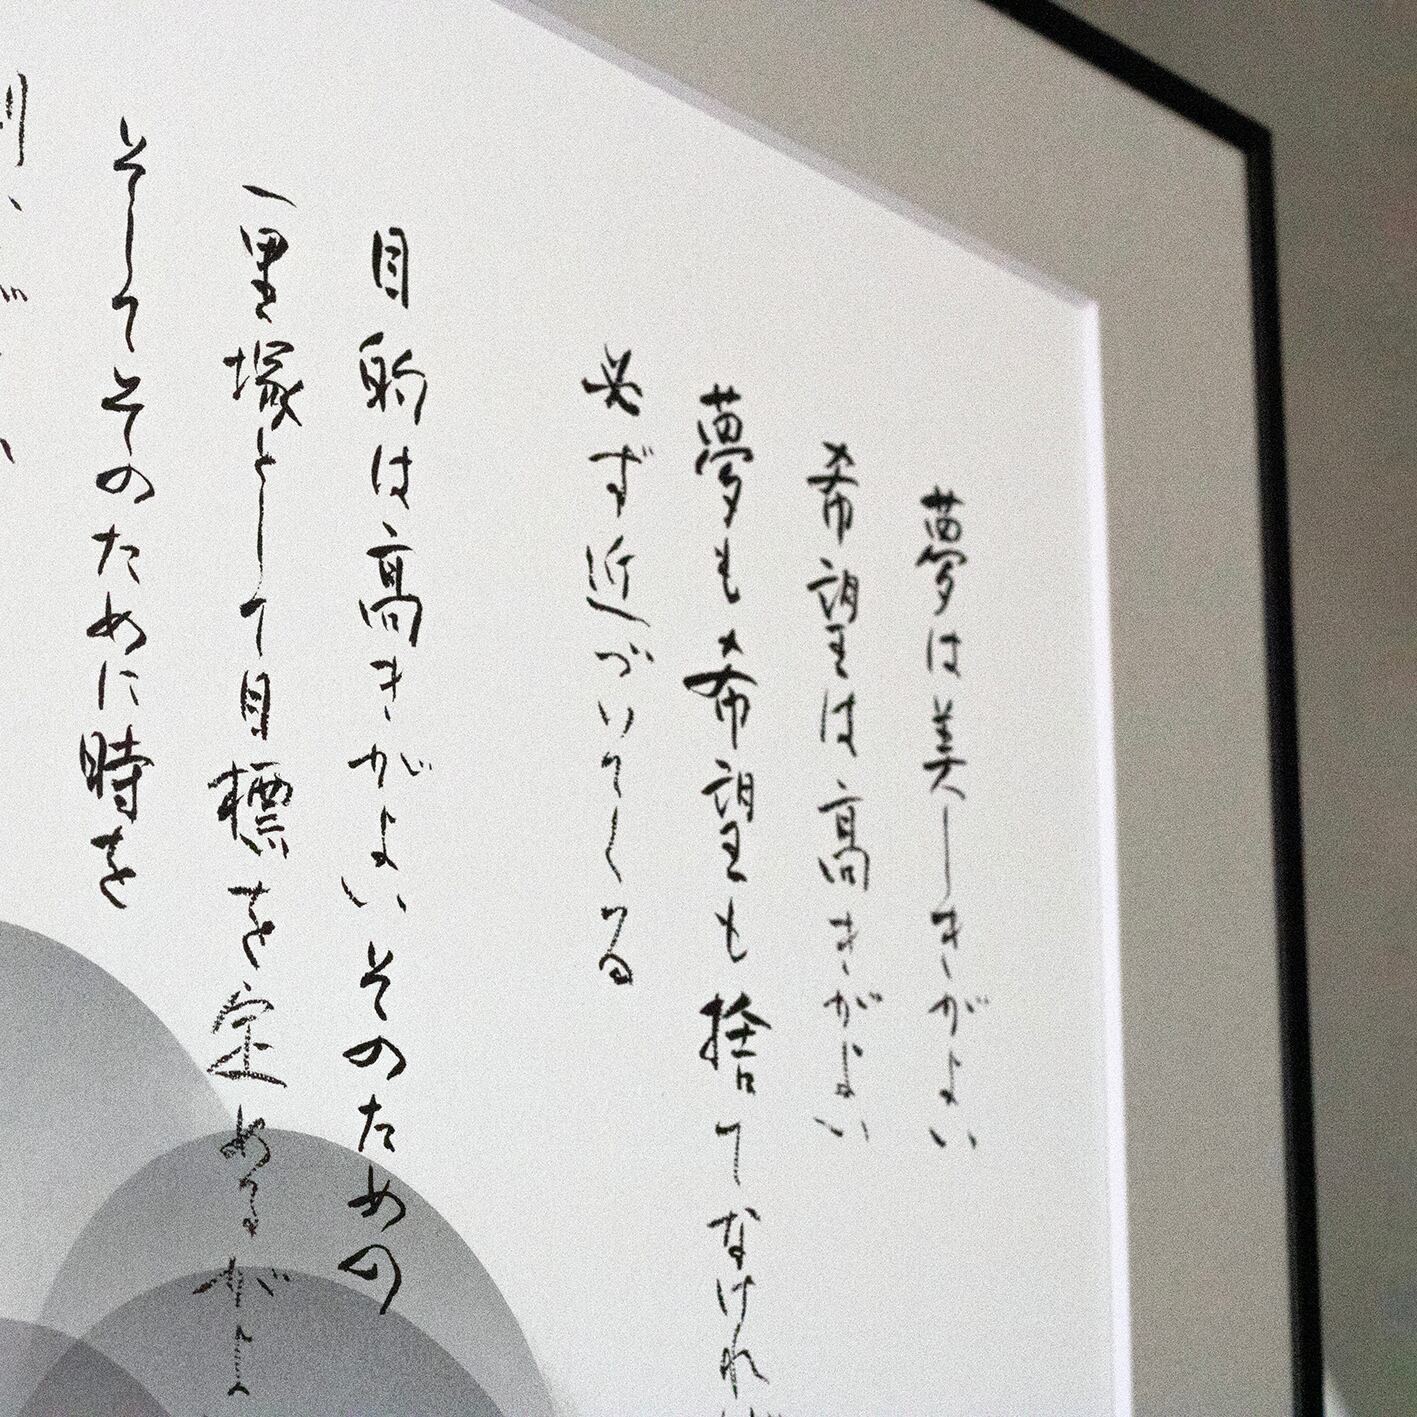 夢は美しきがよい
希望は高きがよい
夢も希望も捨てなければ
必ず近づいてくる
目的は高きがよい そのための
一里塚として目標を定めるがよ
そしてそのために時を